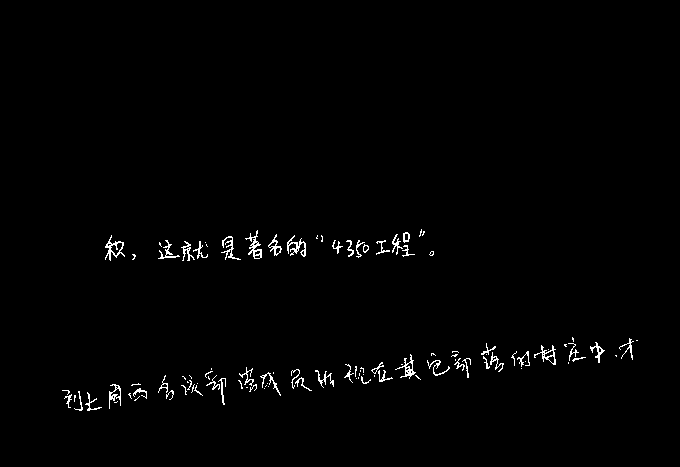 积，这就是著名的“4350工程”。
到上周两名该部落成员出现在其它部落的村庄中，才